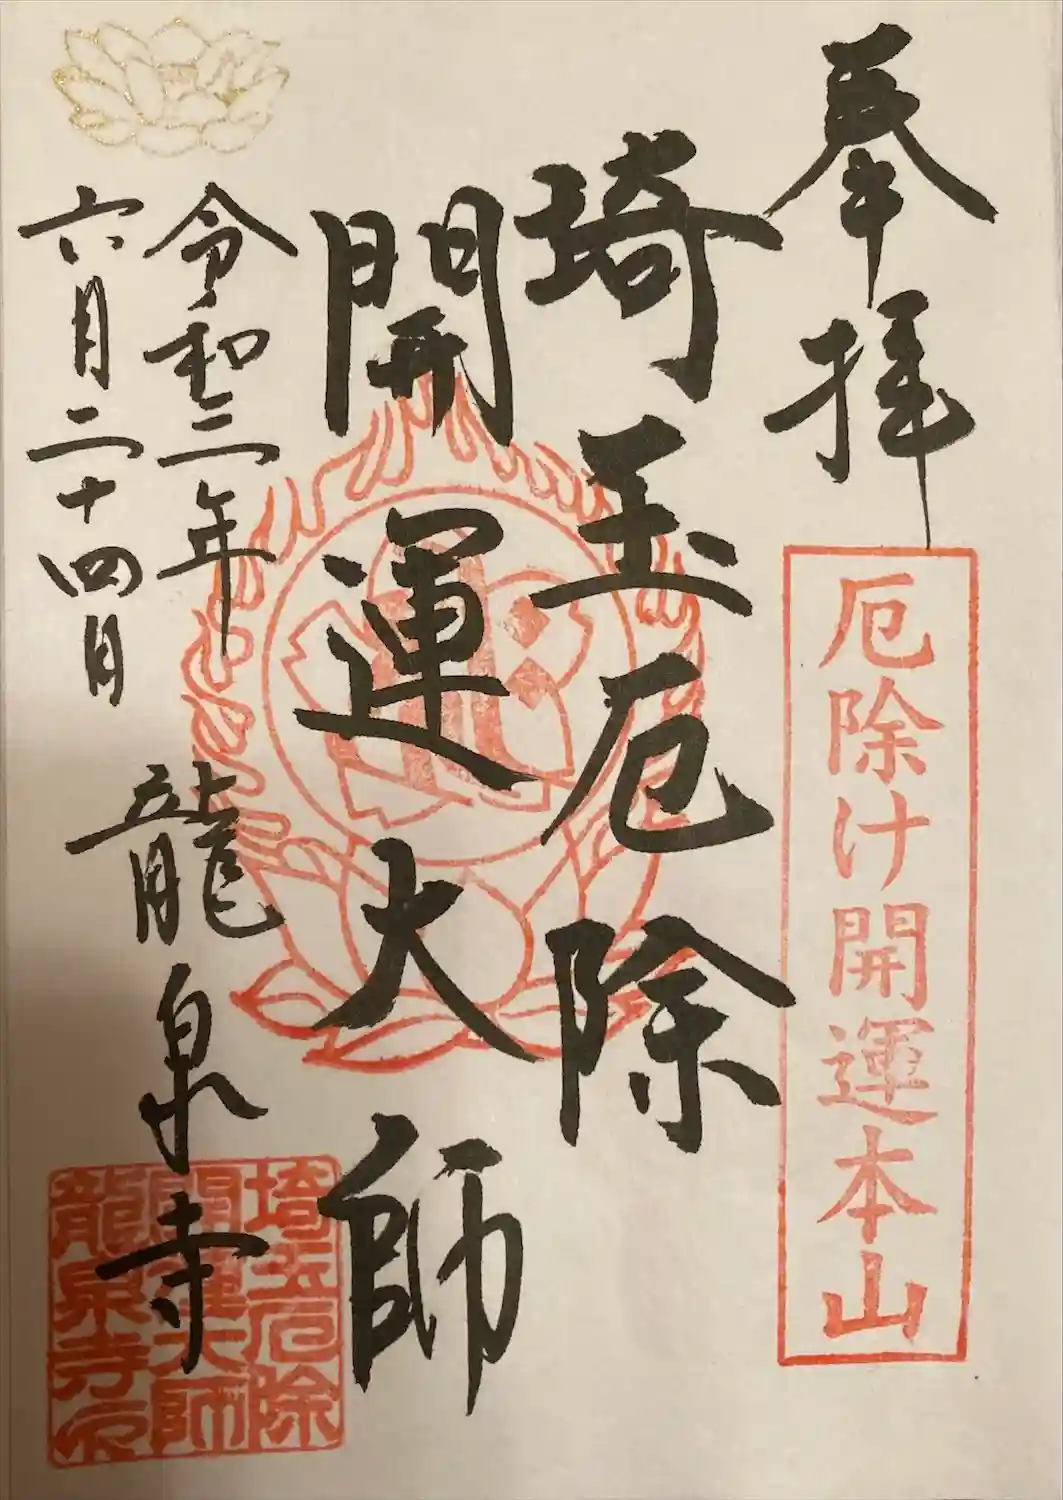 奉拝
厄除け開運本山
埼玉厄除
開運大師
令和三年
六月二十四日
龍泉寺
埼玉厄除
開運大師
龍泉寺印